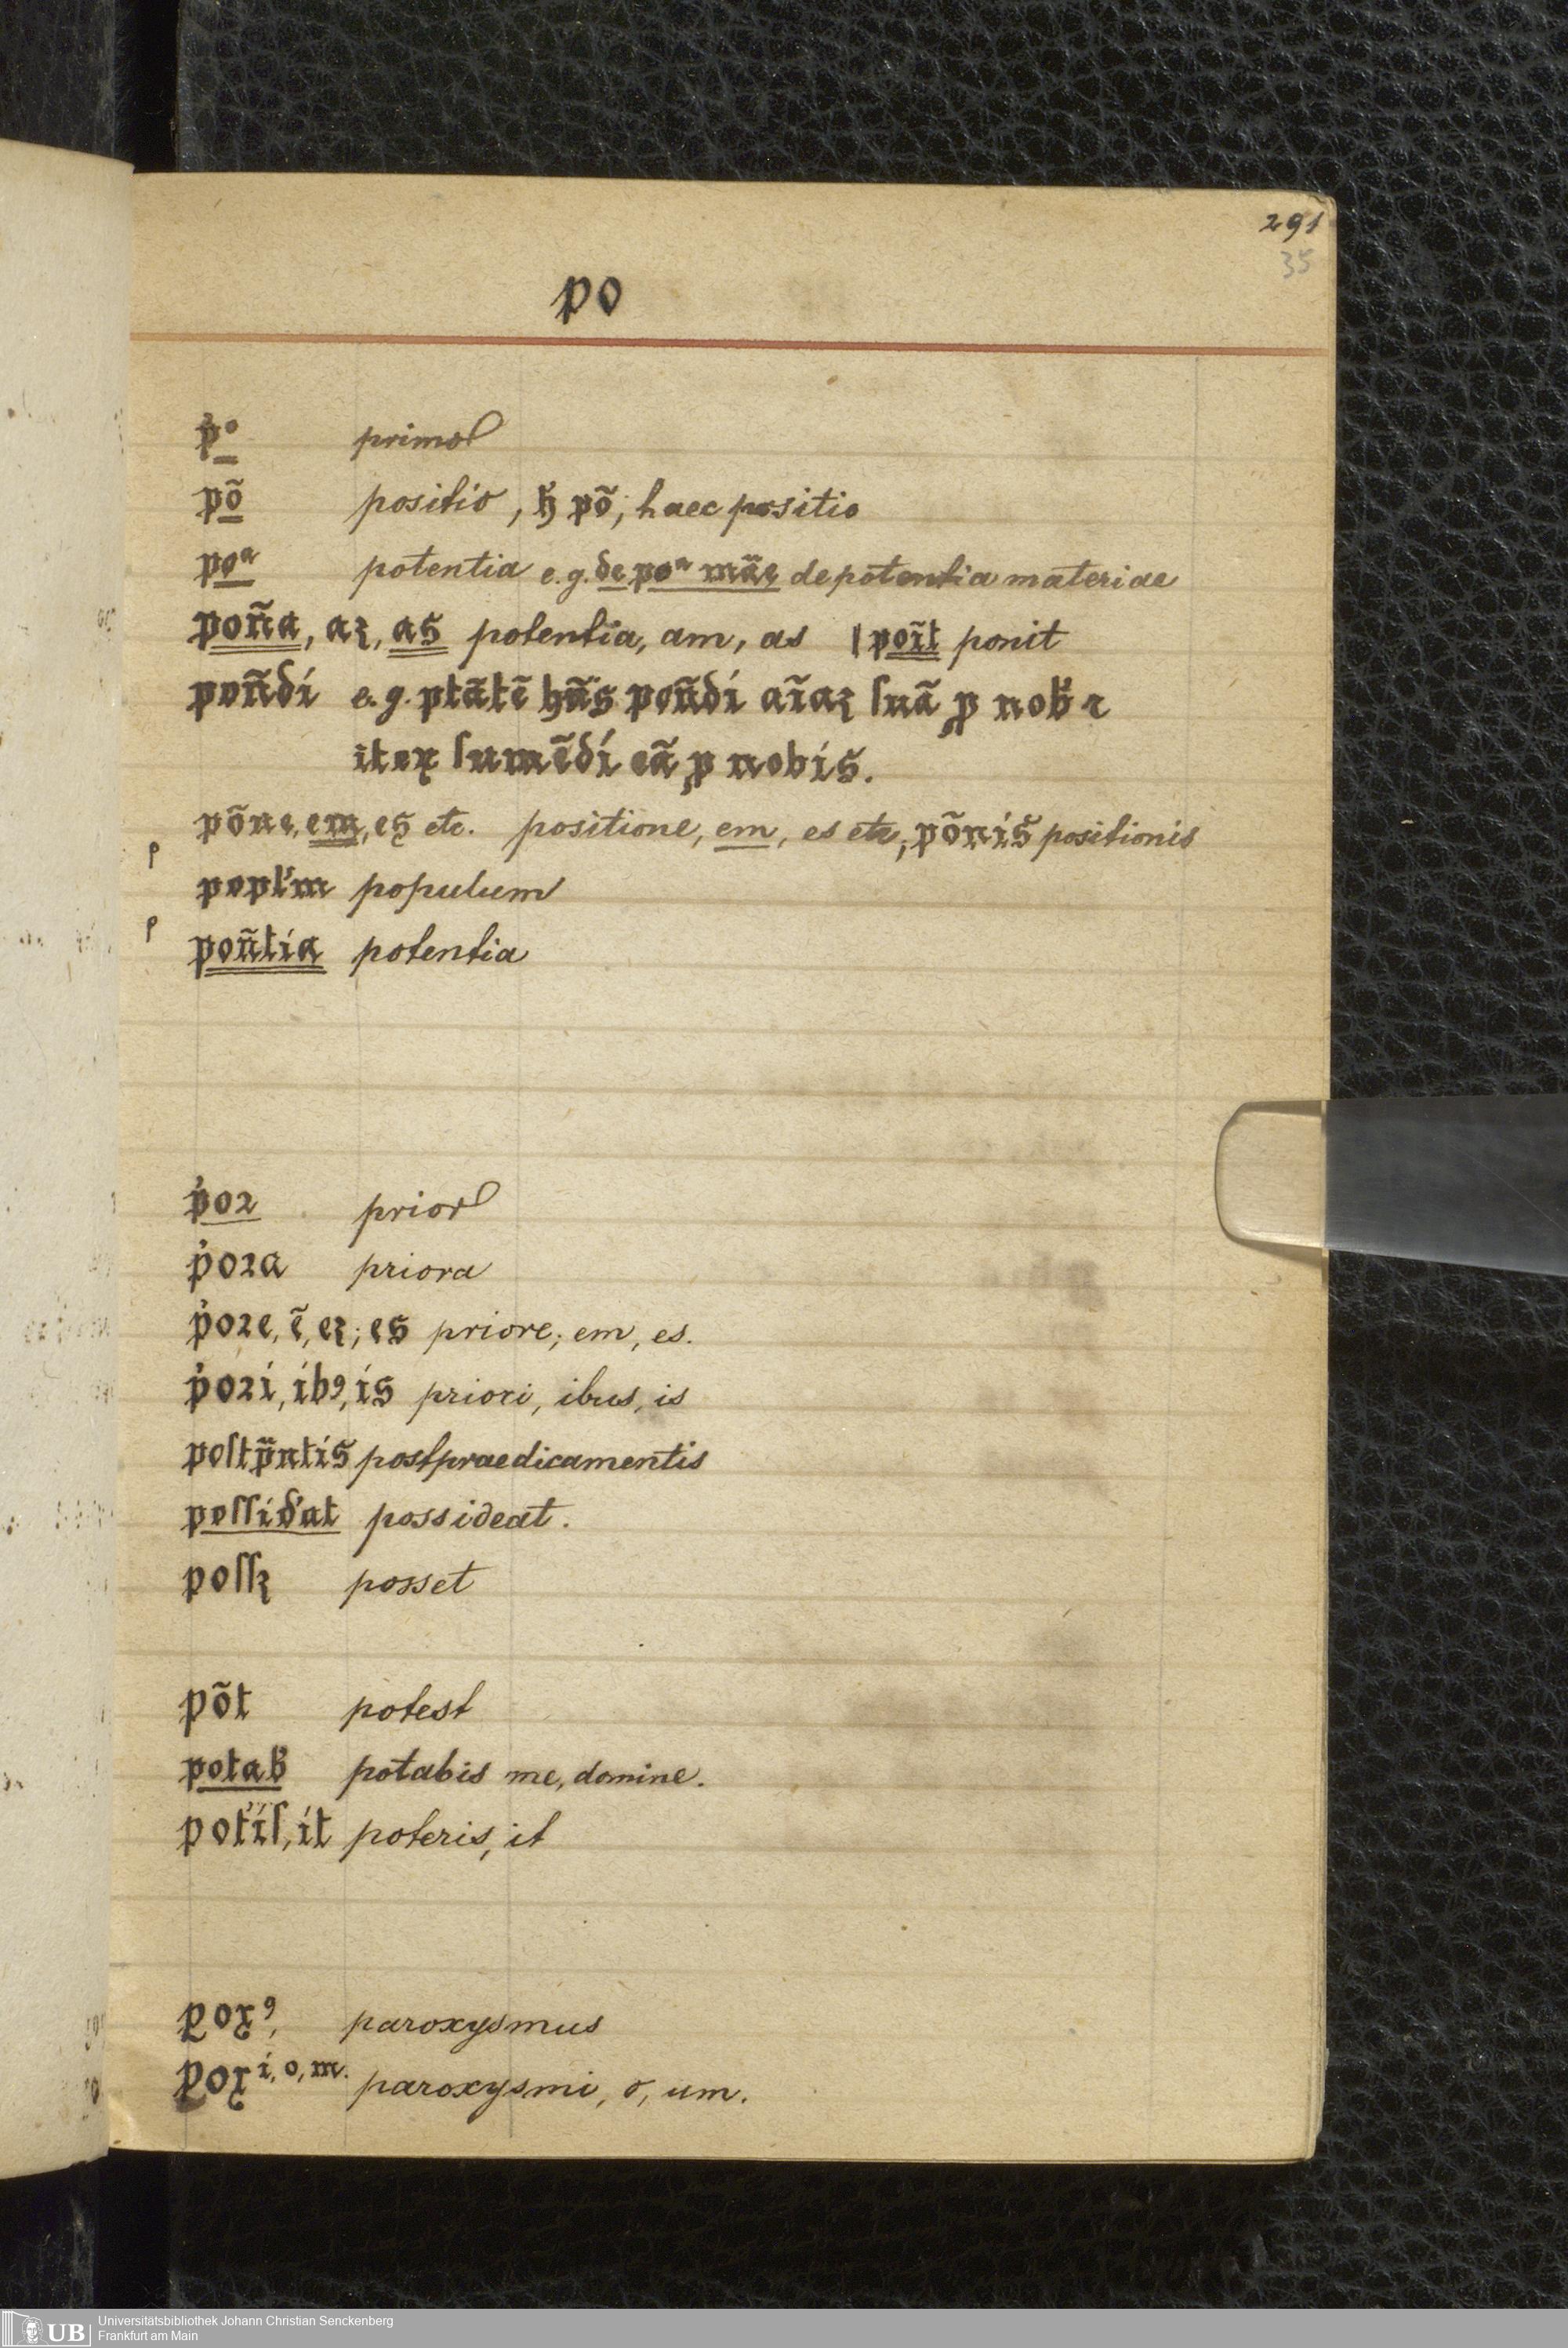 291
35
po
p̍ᵒ primo
põ positio, ħ põ; haec positio
poᵃ potentia e.g. de poᵃ mãe de potentia materiae
poña, aꝫ, as potentia, am, as | poĩt ponit
poñdi e.g. ptãtẽ hñs poñdi aĩaꝫ ſuã ꝓ nob̾ ⁊
iteꝝ ſumẽdi eã ꝓ nobis.
põne, em, es etc. positione, em, es etc, põnis positionis
popl̾m populum
poñtia potentia
p̍oꝛ prior
p̍oꝛa priora
p̍oꝛe, ẽ, eꝫ; es priore; em, es.
p̍oꝛi, ibꝰ, is priori, ibus, is
poſtp̃ntis postpraedicamentis
poſſid̾at possideat.
poſſꝫ posset
põt potest
potab̾ potabis me, domine.
pot̾iſ, it poteris, it
ꝑoxꝰ, paroxysmus
ꝑoxⁱ, ᵒ, ᵐ. paroxysmi, o, um.
UB Universitätsbibliothek Johann Christian Senckenberg
Frankfurt am Main